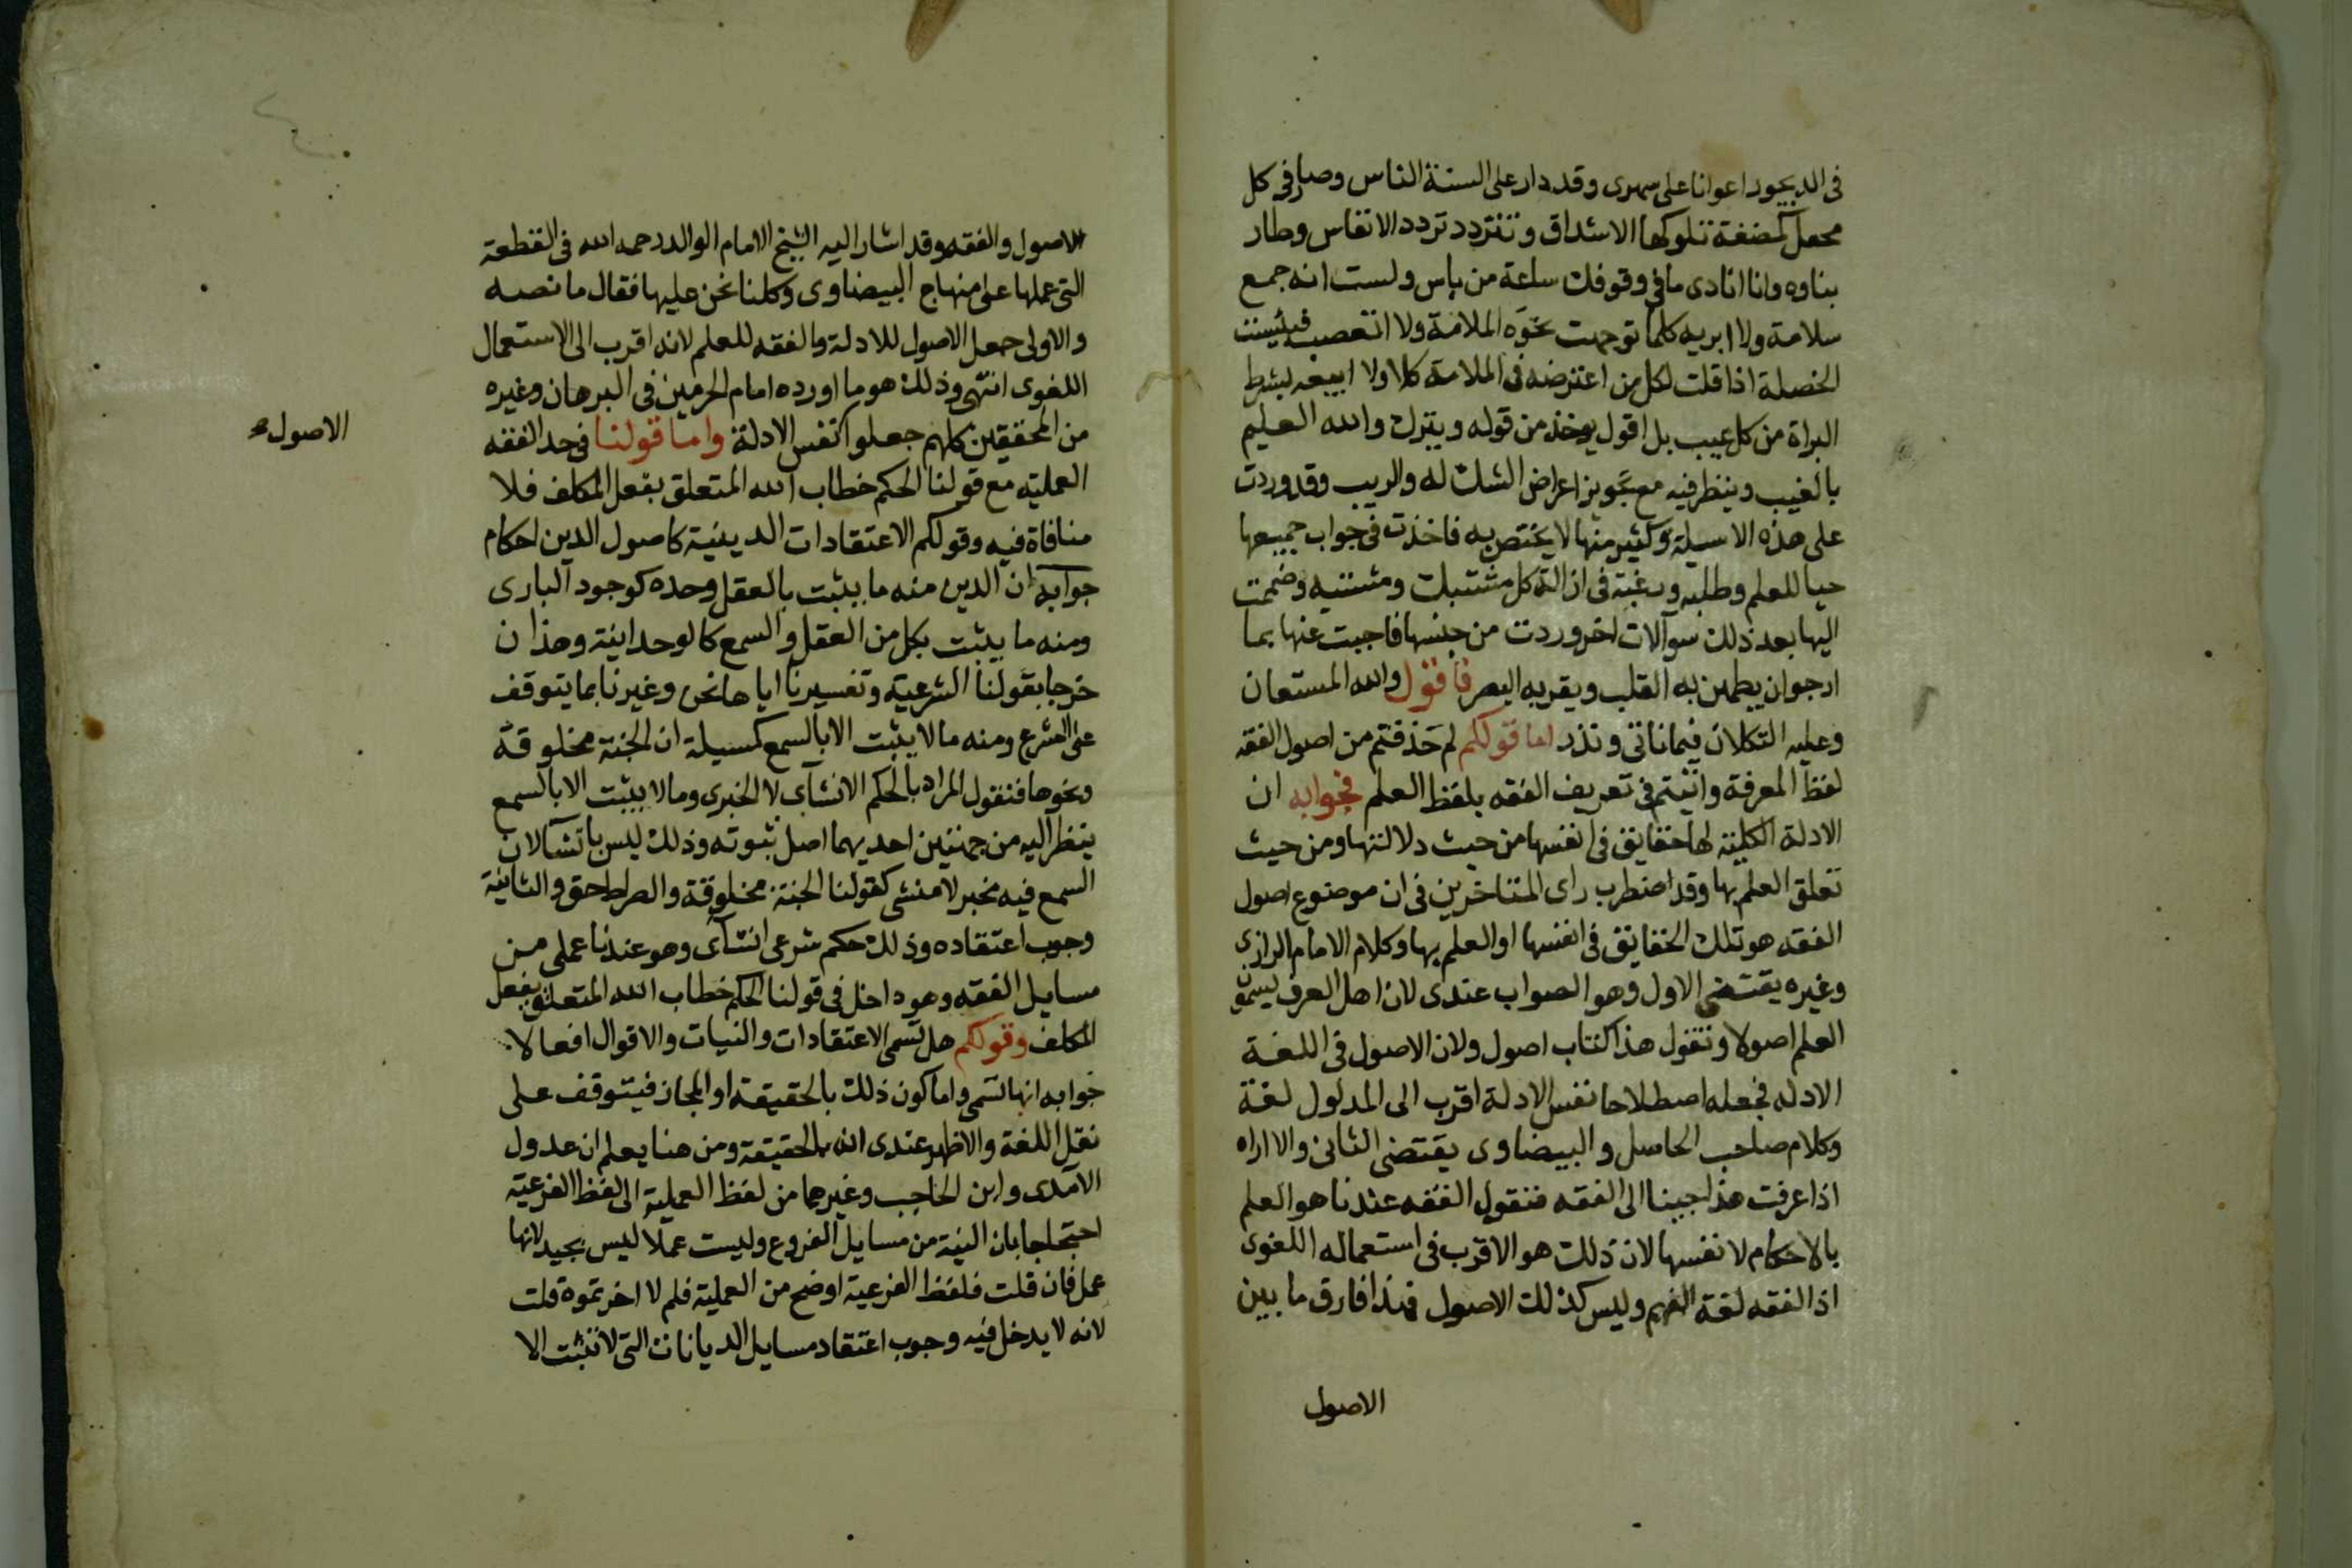 فى الديجور اعوانا على سهرى وقد دار على السنة الناس وصار فى كل
محفل كمضغة تلوكها الاشداق وتتردد تردد الانفاس وطار
بناوه وانا انادى ما فى وقوفك ساعة من باس ولست انه جمع
سلامة ولا ابريه كلما توجهت نحوه الملامة ولا اتعصب فبئست
الخصلة اذا قلت لكل من اعترضه فى الملامة كلا ولا ابيعه بشرط
البراة من كل عيب بل اقول يوخذ من قوله ويترك والله العليم
بالغيب وينظر فيه مع تجويز اعراض الشك له والريب وقد وردت
على هذه الاسيلة وكثير منها لا يختص به فاخذت فى جواب جميعها
حبا للعلم وطلبه ورغبة فى ازالة كل مشتبك ومشتبه وضممت
اليها بعد ذلك سوآلات اخر وردت من جنسها فاجبت عنها بما
ارجو ان يطمين به القلب ويقر به البصر فاقول والله المستعان
وعليه التكلان فيما ناتى ونذر اما قولكم لم حذفتم من اصول الفقه
لفظ المعرفة واتيتم فى تعريف الفقه بلفظ العلم فجوابه ان
الادلة الكلية لها حقايق فى انفسها من حيث دلالتها ومن حيث
تعلق العلم بها وقد اضطرب راى المتاخرين فى ان موضوع اصول
الفقه هو تلك الحقايق فى انفسها او العلم بها وكلام الامام الرازى
وغيره يقتضى الاول وهو الصواب عندى لان اهل العرف يسمون
العلم اصولا ونقول هذا كتاب اصول ولان الاصول فى اللغة
الادله فجعله اصطلاحا نفس الادلة اقرب الى المدلول لغة
وكلام صاحب الحاصل والبيضاوى يقتضى الثانى والا اراه
اذا عرفت هذا جينا الى الفقه فنقول الفقه عندنا هو العلم
بالاحكام لا نفسها لان ذلك هو الاقرب فى استعماله اللغوى
اذ الفقه لغة الفهم وليس كذلك الاصول فهذا فارق ما بين
الاصول
الاصول والفقه وقد اشار اليه الشيخ الامام الوالد رحمه الله فى القطعة
التى عملها على منهاج البيضاوى وكلنا نحن عليها فقال ما نصه
والاولى جعل الاصول للادلة والفقه للعلم لانه اقرب الى الاستعمال
اللغوى انتهى وذلك هو ما اورده امام الحرمين فى البرهان وغيره
من المحققين كلهم جعلوا نفس الادلة واما قولنا فى حد الفقه
الاصول
العمليه مع قولنا الحكم خطاب الله المتعلق بفعل المكلف فلا
منافاة فيه وقولكم الاعتقادات الدينية كاصول الدين احكام
جوابه ان الدين منه ما يثبت بالعقل وحده كوجود البارى
ومنه ما يثبت بكل من العقل والسمع كالوحدانية وهذان
خرجا بقولنا الشرعية وتفسيرنا اياها نحن وغيرنا بما يتوقف
على الشرع ومنه ما لا يثبت الا بالسمع كمسيلة ان الجنة مخلوقة
ونحوها فنقول المراد بالحكم الانشاى لا الخبرى وما لا يثبت الا بالسمع
ينظر اليه من جهتين احديهما اصل ثبوته وذلك ليس بانشآ لان
السمع فيه مخبر لا منشى كقولنا الجنة مخلوقة والصراط حق والثانية
وجوب اعتقاده وذلك حكم شرعى انشآى وهو عندنا عملى من
مسايل الفقه وهو داخل فى قولنا الحكم خطاب الله المتعلق بفعل
المكلف وقولكم هل تسمى الاعتقادات والنيات والاقوال افعالا
جوابه انها تسمى واما كون ذلك بالحقيقة او المجاز فيتوقف على
نقل اللغة والاظهر عندى انه بالحقيقة ومن هنا يعلم ان عدول
الآمدى وابن الحاجب وغيرهما من لفظ العملية الى لفظ الفرعية
احتجاجا بان النية من مسايل الفروع وليست عملا ليس بجيد لانها
عمل فان قلت فلفظ الفرعية اوضح من العملية فلم لا اخترتموه قلت
لانه لا يدخل فيه وجوب اعتقاد مسايل الديانات التى لا تثبت الا